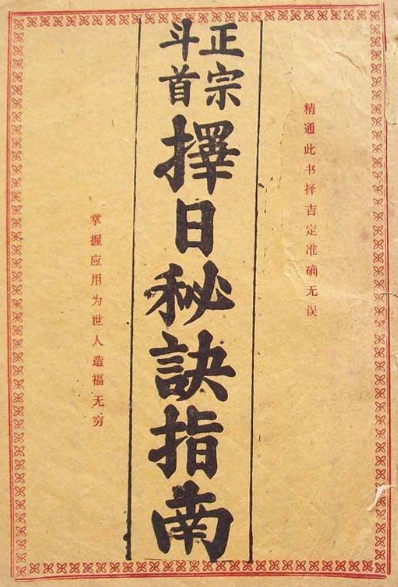 精通此书择吉定准确无误
正宗
斗首
擇日秘訣指南
掌握应用为世人造福无穷